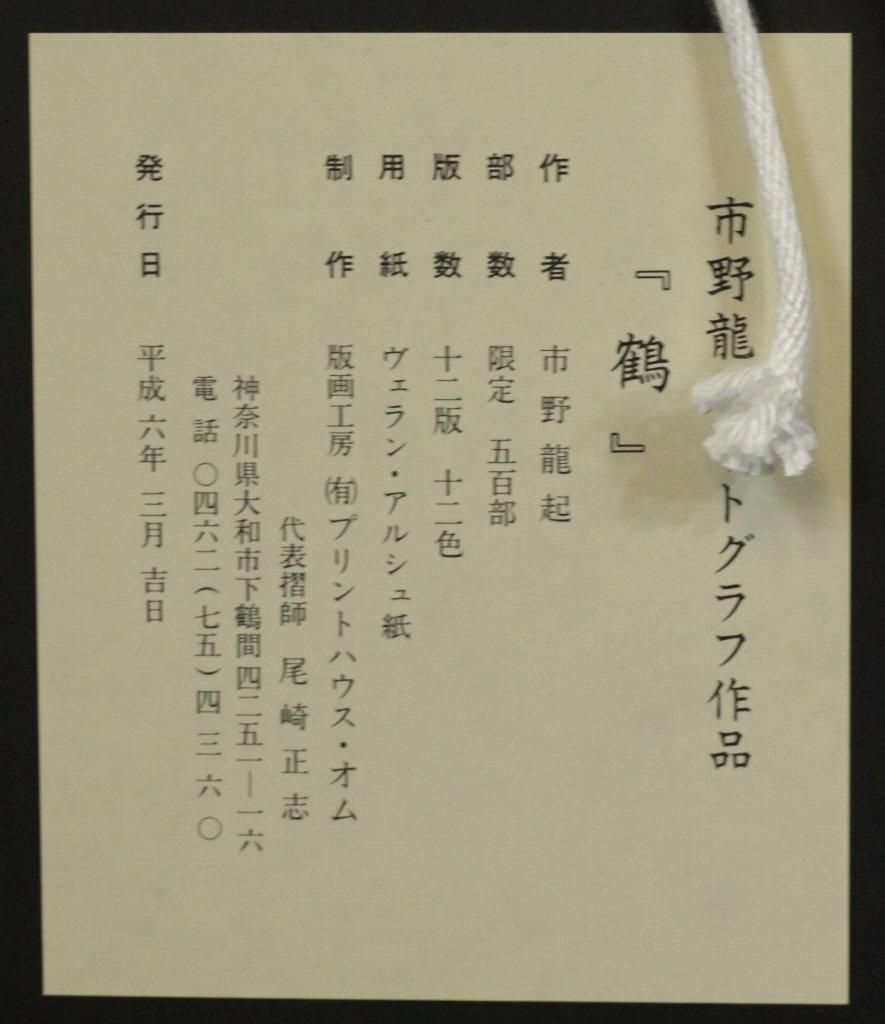 市野龍 トグラフ作品
『鶴』
作者 市野龍起
部数 限定 五百部
版数 十二版 十二色
用紙 ヴェラン・アルシュ紙
制作 版画工房 ㈲プリントハウス・オム
代表摺師 尾崎正志
神奈川県大和市下鶴間四二五一―一六
電話 〇四六二(七五)四三六〇
発行日 平成六年三月吉日